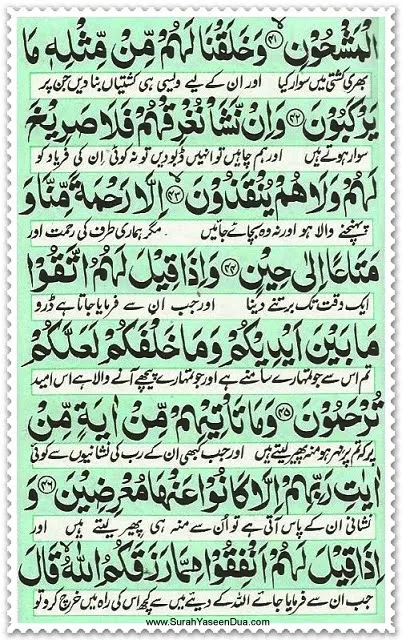 الْمَشْحُوْنِ ﴿۴۱﴾ وَخَلَقْنَا لَهُمْ مِّنْ مِّثْلِهٖ مَا
بھری کشتی میں سوار کیا اور ان کے لیے ویسی ہی کشتیاں بنا دیں جن پر
یَرْكَبُوْنَ ﴿۴۲﴾ وَاِنْ نَّشَاْ نُغْرِقْهُمْ فَلَا صَرِیْخَ
سوار ہوتے ہیں اور ہم چاہیں تو انہیں ڈبو دیں تو نہ کوئی ان کی فریاد کو
لَهُمْ وَلَا هُمْ یُنْقَذُوْنَ ﴿۴۳﴾ اِلَّا رَحْمَةً مِّنَّا وَ
پہنچنے والا ہو اور نہ وہ بچائے جائیں مگر ہماری طرف کی رحمت اور
مَتَاعًا اِلٰی حِیْنٍ ﴿۴۴﴾ وَاِذَا قِیْلَ لَهُمُ اتَّقُوْا
ایک وقت تک برتنے دینا اور جب ان سے فرمایا جاتا ہے ڈرو
مَا بَیْنَ اَیْدِیْكُمْ وَمَا خَلْفَكُمْ لَعَلَّكُمْ
تم اس سے جو تمہارے سامنے ہے اور جو تمہارے پیچھے آنے والا ہے اس امید
تُرْحَمُوْنَ ﴿۴۵﴾ وَمَا تَاْتِیْهِمْ مِّنْ اٰیَةٍ مِّنْ
پر کہ تم پر مہر ہو منہ پھیر لیتے ہیں اور جب کبھی ان کے رب کی نشانیوں سے کوئی
اٰیٰتِ رَبِّهِمْ اِلَّا كَانُوْا عَنْهَا مُعْرِضِیْنَ ﴿۴۶﴾ وَ
نشانی ان کے پاس آتی ہے تو اُن سے منہ ہی پھیر لیتے ہیں اور
اِذَا قِیْلَ لَهُمْ اَنْفِقُوْا مِمَّا رَزَقَكُمُ اللّٰهُ قَالَ
جب ان سے فرمایا جائے اللہ کے دیئے میں سے کچھ اس کی راہ میں خرچ کرو تو
www.SurahYaseenDua.com